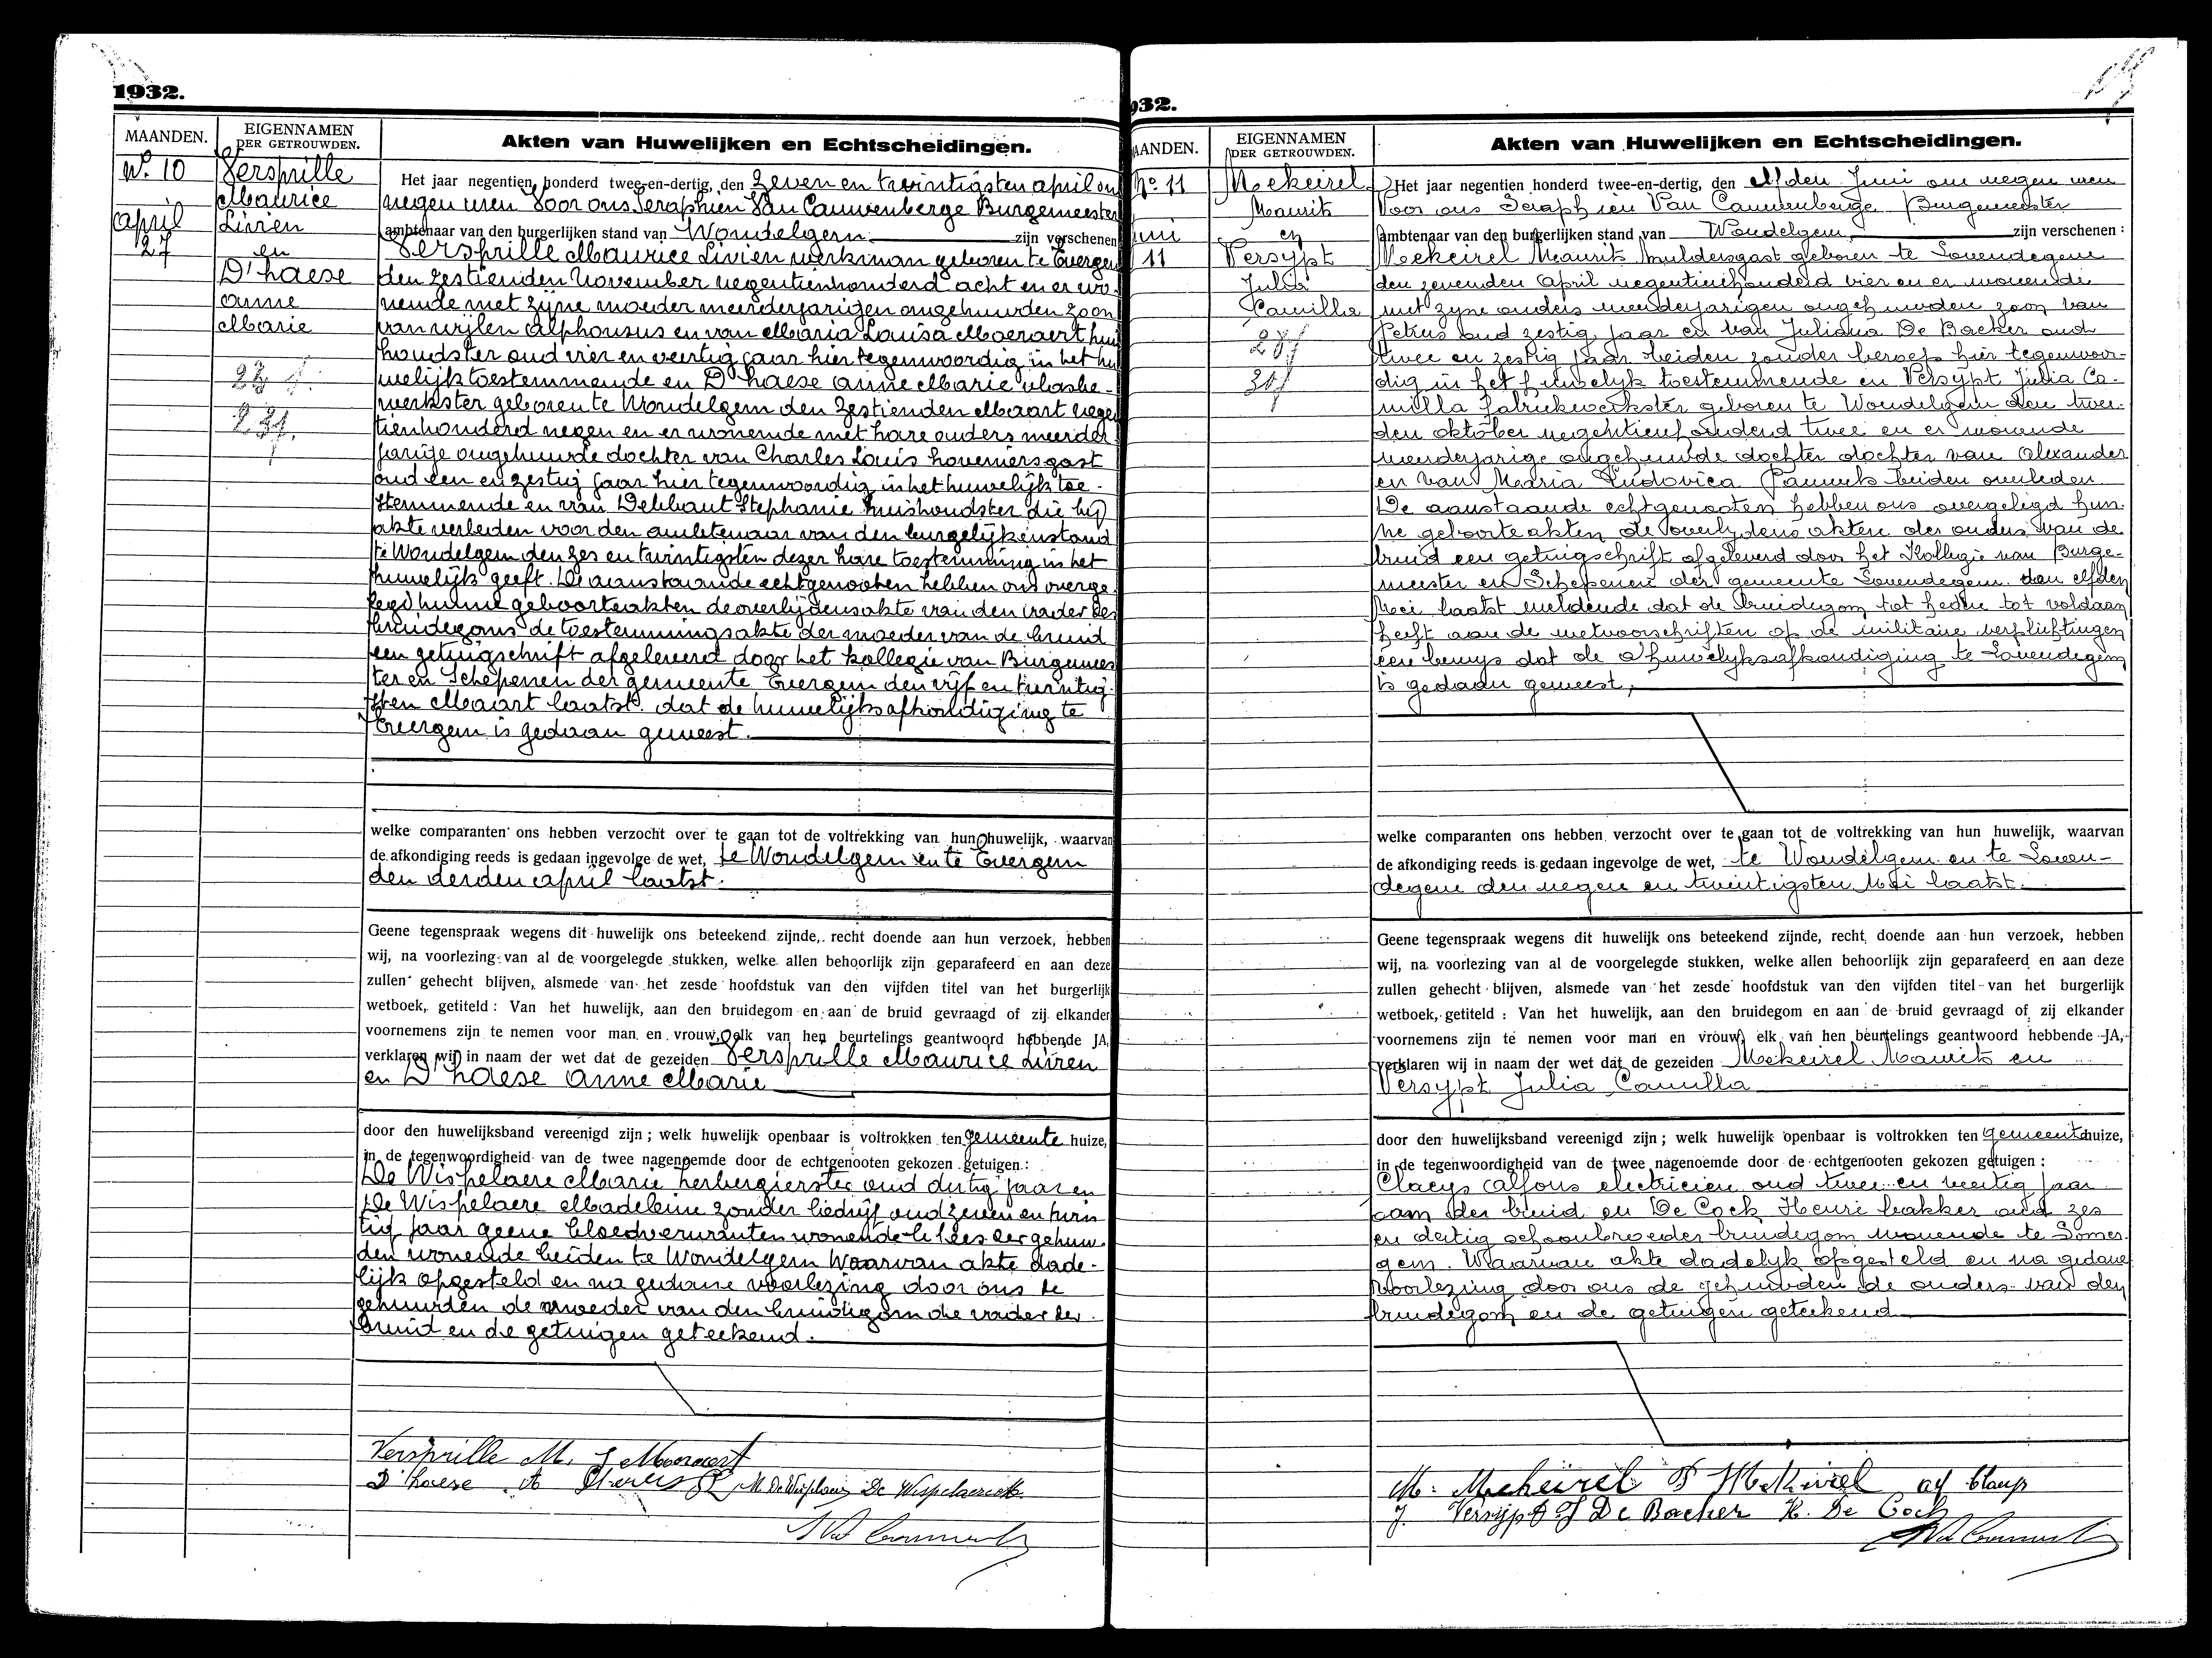 1932.
MAANDEN.
EIGENNAMEN
DER GETROUWDEN.
Akten van Huwelijken en Echtscheidingen.
N.º 10
april
27
Versprille
Maurice
Livien
en
D'haese
anne
Marie
Het jaar negentien honderd twee-en-dertig, den zeven en twintigsten april om
negen uren Voor ons Seraphien Van Cauwenberge Burgemeester
ambtenaar van den burgerlijken stand van Wondelgem zijn verschenen
Versprille Maurice Livien werkman geboren te Evergem
den zestienden November negentienhonderd acht en er wo-
nende met zijne moeder meerderjarigen ongehuwden zoon
van wijlen Alphonsus en van Maria Louisa Moeraert huis
houdster oud vier en veertig jaar hier tegenwoordig in het hu
welijk toestemmende en D'haese anne Marie vlasbe-
werkster geboren te Wondelgem den zestienden Maart negen
tienhonderd negen en er wonende met hare ouders meerder
jarige ongehuwde dochter van Charles Louis hoveniersgast
oud een en zestig jaar hier tegenwoordig in het huwelijk toe-
stemmende en van Delbaut Stephanie huishoudster die bij
akte verleden voor den ambtenaar van den burgelijken stand
te Wondelgem den zes en twintigsten dezer hare toestemming in het
huwelijk geeft. De aanstaande echtgenooten hebben ons overge
legd hunne geboorteakten de overlijdensakte van den vader des
bruidegoms de toestemmingsakte der moeder van de bruid
een getuigschrift afgeleverd door het kollegie van Burgemees
ter en Schepenen der gemeente Evergem den vijf en twintig-
sten Maart laatst. dat de huwelijksafkondiging te
Evergem is gedaan geweest.
welke comparanten ons hebben verzocht over te gaan tot de voltrekking van hun huwelijk, waarvan
de afkondiging reeds is gedaan ingevolge de wet, te Wondelgem en te Evergem
den derden april laatst.
Geene tegenspraak wegens dit huwelijk ons beteekend zijnde, recht doende aan hun verzoek, hebben
wij, na voorlezing van al de voorgelegde stukken, welke allen behoorlijk zijn geparafeerd en aan deze
zullen gehecht blijven, alsmede van het zesde hoofdstuk van den vijfden titel van het burgerlijk
wetboek, getiteld : Van het huwelijk, aan den bruidegom en aan de bruid gevraagd of zij elkander
voornemens zijn te nemen voor man en vrouw, elk van hen beurtelings geantwoord hebbende JA,
verklaren wij in naam der wet dat de gezeiden Versprille Maurice Livien
en D'haese anne Marie
door den huwelijksband vereenigd zijn ; welk huwelijk openbaar is voltrokken ten gemeente huize,
in de tegenwoordigheid van de twee nagenoemde door de echtgenooten gekozen getuigen :
De Wispelaere Marie herbergierster oud dertig jaar en
De Wispelaere Madeleine zonder bedrijf oud zeven en twin
tig jaar geene bloedverwanten wonende der gehuw
den wonende beiden te Wondelgem Waarvan akte dade-
lijk opgesteld en na gedane voorlezing door ons de
gehuwden de moeder van den bruidegom die vader der
bruid en de getuigen geteekend.
Versprille M. J Moeraert
D'haese A M. De Wispelaere De Wispelaere M.
932.
AANDEN.
EIGENNAMEN
DER GETROUWDEN.
Akten van Huwelijken en Echtscheidingen.
Nº 11
uni
11
Mekeirel
Maurits
en
Versypt
Julia
Camilla
Het jaar negentien honderd twee-en-dertig, den elfden Juni om negen uren
Voor ons Seraphien Van Cauwenberge Burgemeester
ambtenaar van den burgerlijken stand van Wondelgem zijn verschenen :
Mekeirel Maurits muldersgast geboren te Lovendegem
den zevenden April negentienhonderd vier en er wonende
met zyne ouders meerderjarigen ongehuwden zoon van
Petrus oud zestig jaar en van Juliana De Backer oud
twee en zestig jaar beiden zonder beroep hier tegenwoor-
dig in het huwelyk toestemmende en Versypt Julia Ca-
milla fabriekwerkster geboren te Wondelgem den twee-
den oktober negentienhonderd twee en er wonende
meerderjarige ongehuwde dochter dochter van Alexander
en van Maria Ludovica Pauwels beiden overleden
De aanstaande echtgenooten hebben ons overgelegd hun-
ne geboorteakten de overlydens akten der ouders van de
bruid een getuigschrift afgeleverd door het Kollegie van Burge-
meester en Schepenen der gemeente Lovendegem den elfden
Mei laatst meldende dat de bruidegom tot heden tot voldaan
heeft aan de wetvoorschriften op de militaire verplichtingen
een bewys dat de huwelyksafkondiging te Lovendegem
is gedaan geweest,
welke comparanten ons hebben verzocht over te gaan tot de voltrekking van hun huwelijk, waarvan
de afkondiging reeds is gedaan ingevolge de wet, te Wondelgem en te Loven-
degem den negen en twintigsten Mei laatst.
Geene tegenspraak wegens dit huwelijk ons beteekend zijnde, recht doende aan hun verzoek, hebben
wij, na voorlezing van al de voorgelegde stukken, welke allen behoorlijk zijn geparafeerd en aan deze
zullen gehecht blijven, alsmede van het zesde hoofdstuk van den vijfden titel van het burgerlijk
wetboek, getiteld : Van het huwelijk, aan den bruidegom en aan de bruid gevraagd of zij elkander
voornemens zijn te nemen voor man en vrouw, elk van hen beurtelings geantwoord hebbende JA,
verklaren wij in naam der wet dat de gezeiden Mekeirel Maurits en
Versypt Julia Camilla
door den huwelijksband vereenigd zijn ; welk huwelijk openbaar is voltrokken ten gemeentehuize,
in de tegenwoordigheid van de twee nagenoemde door de echtgenooten gekozen getuigen :
Claeys Alfons electricien oud twee en veertig jaar
oom der bruid en De Cock Henri bakker oud zes
en dertig schoonbroeder bruidegom wonende te Somer-
gem. Waarvan akte dadelyk opgesteld en na gedane
voorlezing door ons de gehuwden de ouders van den
bruidegom en de getuigen geteekend
M. Mekeirel P Mekeirel Alf Claeys
J. Versijpt J De Backer H. De Cock